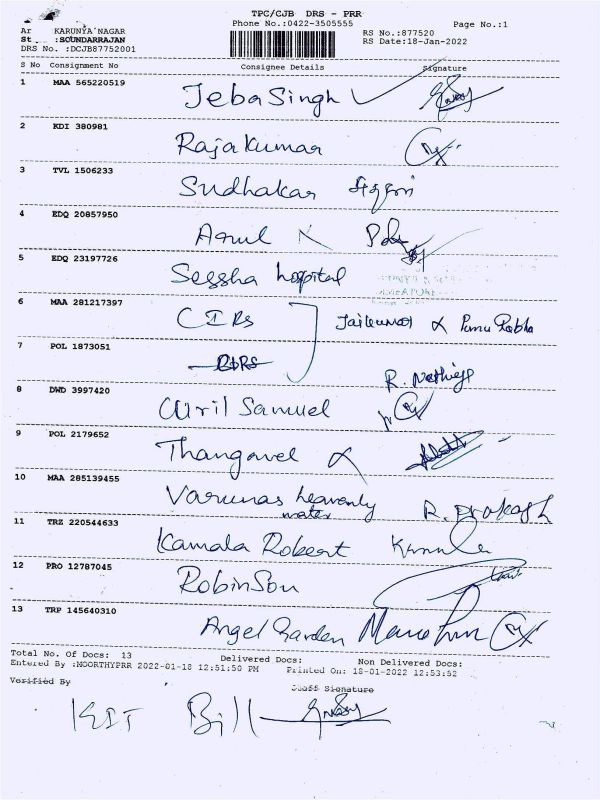 TPC/CJB DRS - PRR
Ar KARUNYA NAGAR Phone No.:0422-3505555 Page No.:1
St :SOUNDARRAJAN RS No.:877520
DRS No. :DCJB87752001 RS Date:18-Jan-2022
S No Consignment No Consignee Details Signature
1 MAA 565220519 Jeba Singh
2 KDI 380981 Rajakumar
3 TVL 1506233 Sudhakar
4 EDQ 20857950
5 EDQ 23197726 Sessha hospital
6 MAA 281217397 CIRs
7 POL 1873051
8 DWD 3997420 Samuel
9 POL 2179652 Thangavel
10 MAA 285139455 Varunas heavenly
water R. Prakash
11 TRZ 220544633 Kamala Robert
12 PRO 12787045 Robinson
13 TRP 145640310 Angel Garden
Total No. Of Docs: 13 Delivered Docs: Non Delivered Docs:
Entered By :MOORTHYPRR 2022-01-18 12:51:50 PM Printed On: 18-01-2022 12:53:52
Verified By Staff Signature
Bill